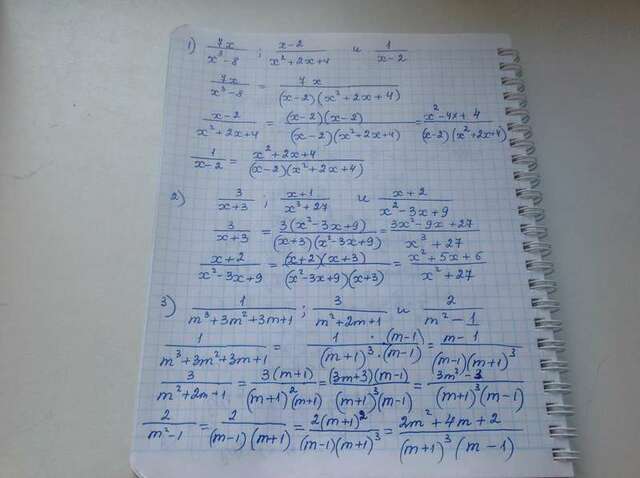 1) 7x/(x³-8) ; (x-2)/(x²+2x+4) и 1/(x-2)
7x/(x³-8) = 7x/((x-2)(x²+2x+4))
(x-2)/(x²+2x+4) = (x-2)(x-2)/((x-2)(x²+2x+4)) = (x²-4x+4)/((x-2)(x²+2x+4))
1/(x-2) = (x²+2x+4)/((x-2)(x²+2x+4))
2) 3/(x+3) ; (x+1)/(x³+27) и (x+2)/(x²-3x+9)
3/(x+3) = 3(x²-3x+9)/((x+3)(x²-3x+9)) = (3x²-9x+27)/(x³+27)
(x+2)/(x²-3x+9) = (x+2)(x+3)/((x²-3x+9)(x+3)) = (x²+5x+6)/(x²+27)
3) 1/(m³+3m²+3m+1) ; 3/(m²+2m+1) и 2/(m²-1)
1/(m³+3m²+3m+1) = 1·(m-1)/((m+1)³·(m-1)) = (m-1)/((m-1)(m+1)³)
3/(m²+2m+1) = 3(m+1)/((m+1)²(m+1)) = (3m+3)(m-1)/((m+1)³(m-1)) = (3m²-3)/((m+1)³(m-1))
2/(m²-1) = 2/((m-1)(m+1)) = 2(m+1)²/((m-1)(m+1)³) = (2m²+4m+2)/((m+1)³(m-1))